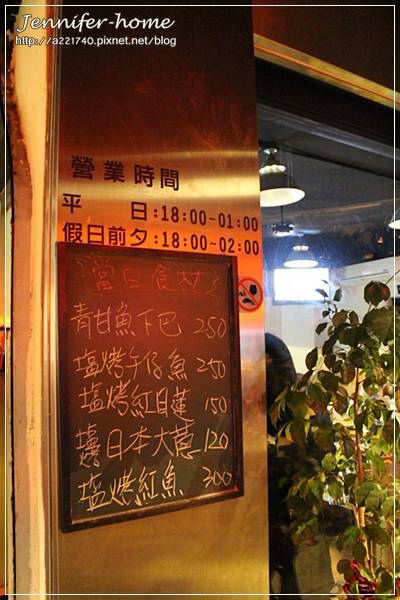 Jennifer-home
http://a221740.pixnet.net/blog
營業時間
平 日:18:00~01:00
假日前夕:18:00~02:00
當日食材
青甘魚下巴 250
塩烤午仔魚 250
塩烤紅目蓮 150
烤日本大蔥 120
塩烤紅魚 300